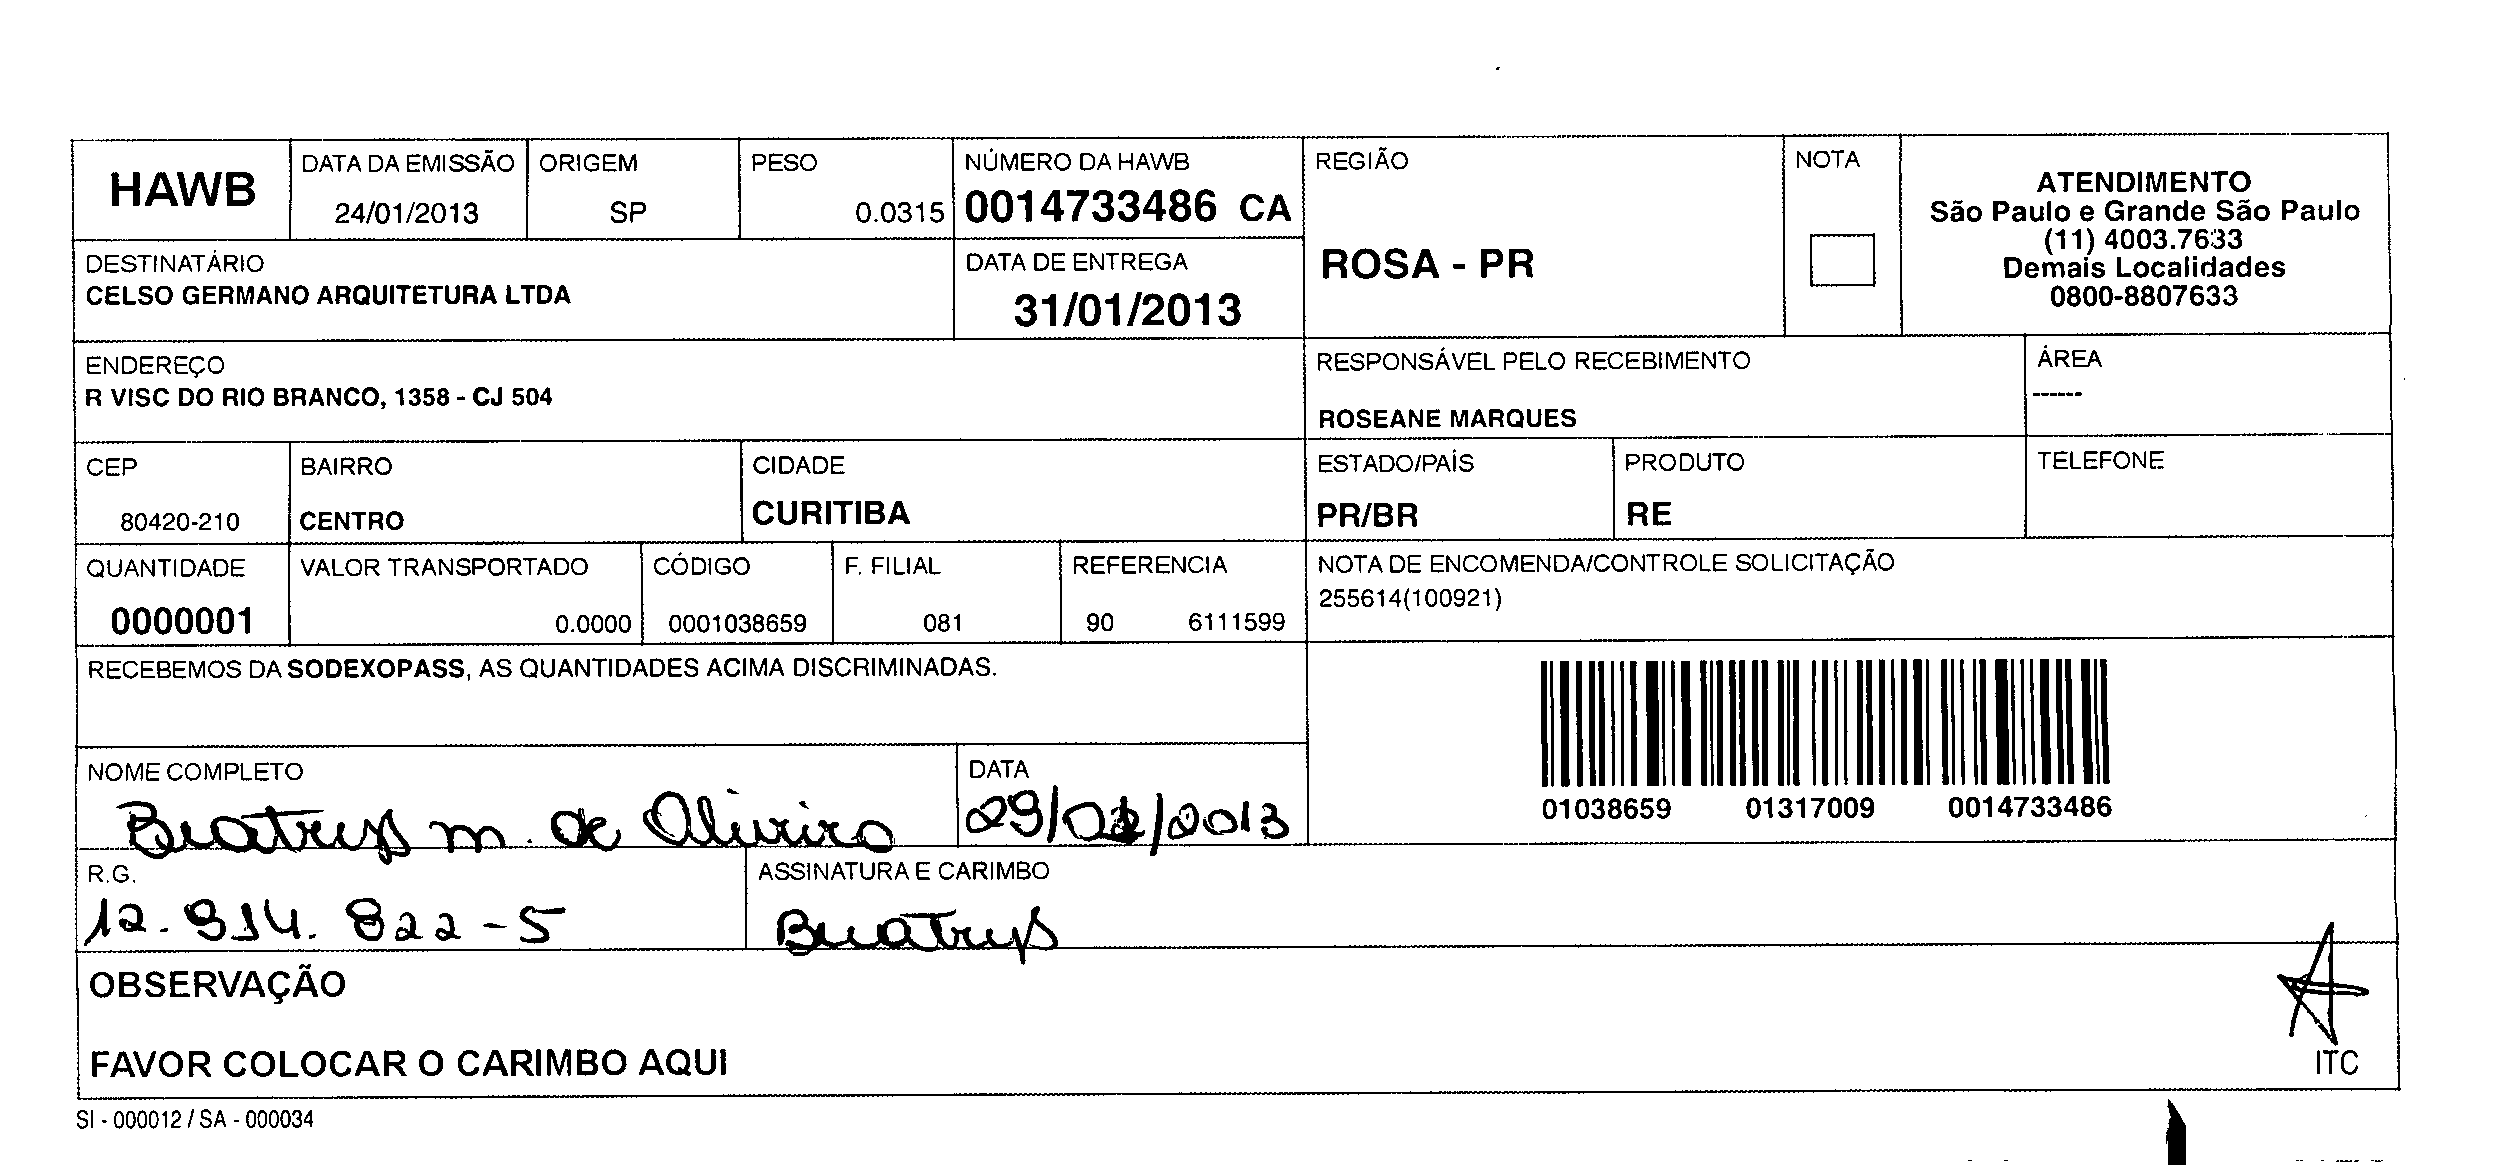 HAWB
DATA DA EMISSÃO
24/01/2013
ORIGEM
SP
PESO
0.0315
NÚMERO DA HAWB
0014733486 CA
REGIÃO
ROSA - PR
NOTA
ATENDIMENTO
São Paulo e Grande São Paulo
(11) 4003.7633
Demais Localidades
0800-8807633
DESTINATÁRIO
CELSO GERMANO ARQUITETURA LTDA
DATA DE ENTREGA
31/01/2013
ENDEREÇO
R VISC DO RIO BRANCO, 1358 - CJ 504
RESPONSÁVEL PELO RECEBIMENTO
ROSEANE MARQUES
ÁREA
------
CEP
80420-210
BAIRRO
CENTRO
CIDADE
CURITIBA
ESTADO/PAÍS
PR/BR
PRODUTO
RE
TELEFONE
QUANTIDADE
0000001
VALOR TRANSPORTADO
0.0000
CÓDIGO
0001038659
F. FILIAL
081
REFERENCIA
90 6111599
NOTA DE ENCOMENDA/CONTROLE SOLICITAÇÃO
255614(100921)
RECEBEMOS DA SODEXOPASS, AS QUANTIDADES ACIMA DISCRIMINADAS.
01038659 01317009 0014733486
NOME COMPLETO
Beatrys m. de Oliveira
DATA
R.G.
12.914.822-5
ASSINATURA E CARIMBO
Beatrys
OBSERVAÇÃO
FAVOR COLOCAR O CARIMBO AQUI
ITC
SI - 000012 / SA - 000034